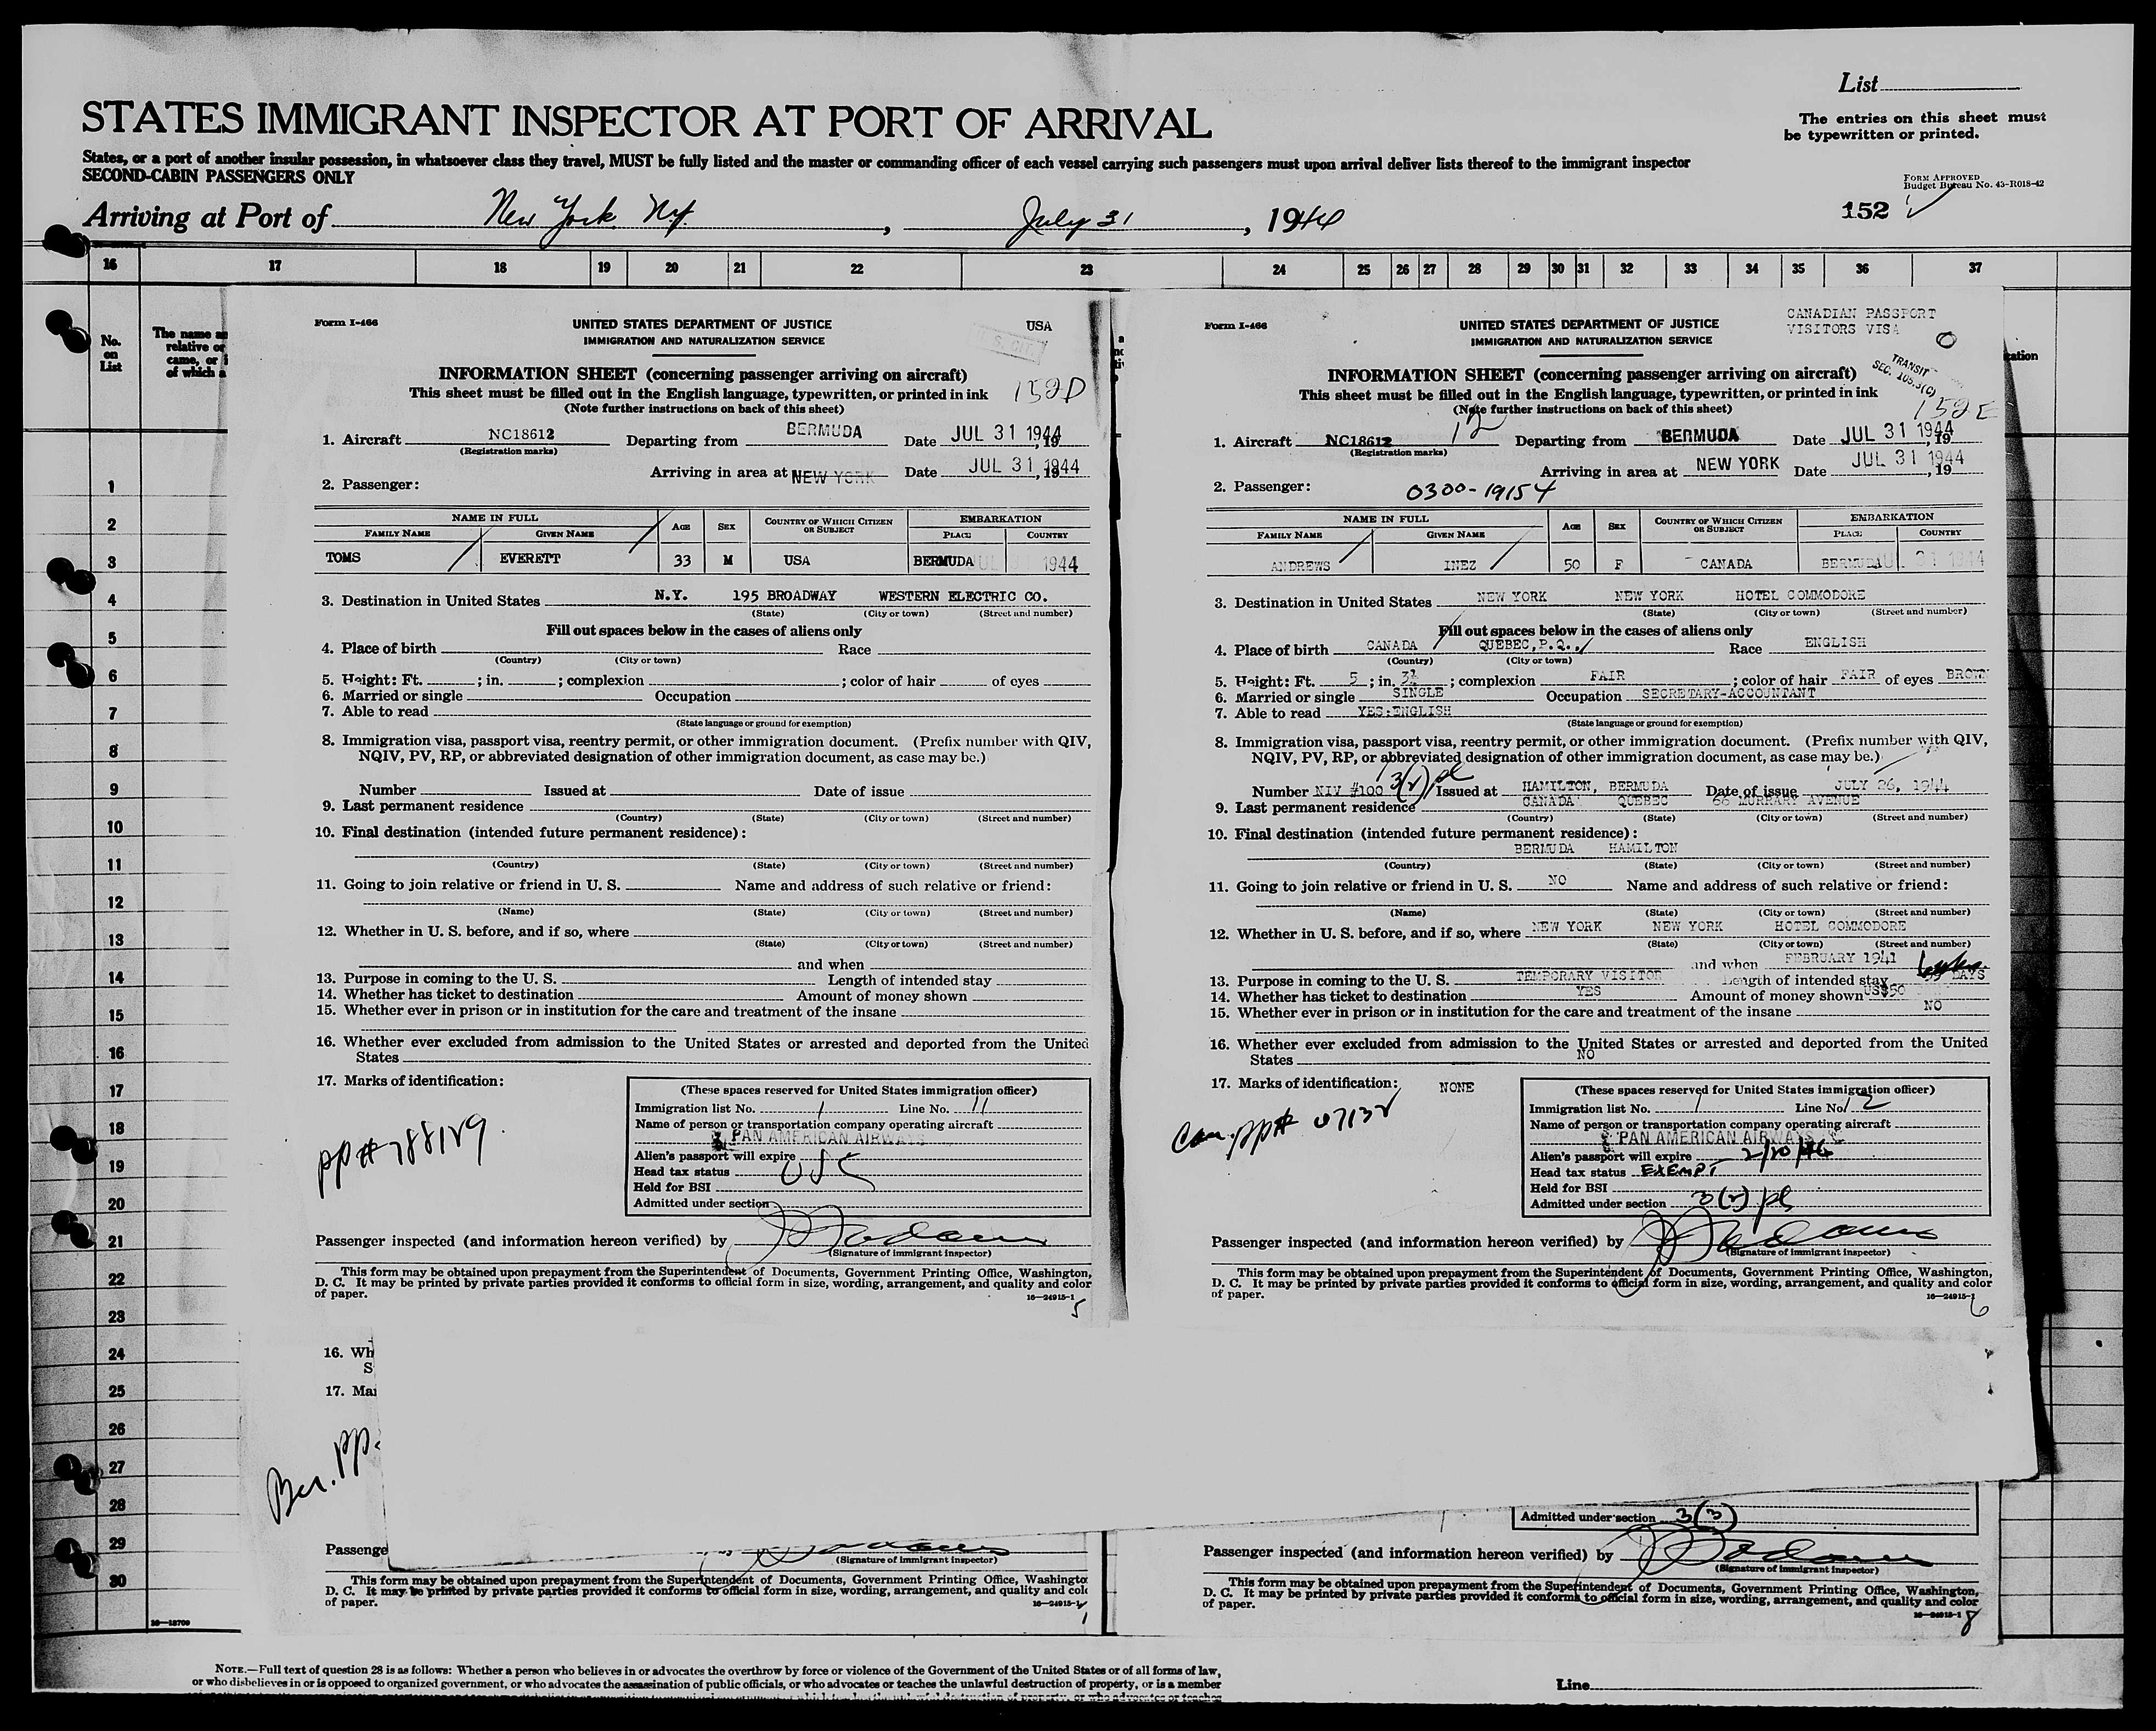 List
STATES IMMIGRANT INSPECTOR AT PORT OF ARRIVAL
The entries on this sheet must
be typewritten or printed.
States, or a port of another insular possession, in whatsoever class they travel, MUST be fully listed and the master or commanding officer of each vessel carrying such passengers must upon arrival deliver lists thereof to the immigrant inspector
SECOND-CABIN PASSENGERS ONLY
FORM APPROVED
Budget Bureau No. 43-R018-42
Arriving at Port of New York N.Y. , July 31 , 1944
152
16 17 18 19 20 21 22 23 24 25 26 27 28 29 30 31 32 33 34 35 36 37
No.
on
List
The name an
relative or
came, or i
of which a
1
2
3
4
5
6
7
8
9
10
11
12
13
14
15
16
17
18
19
20
21
22
23
24
25
26
27
28
29
30
16—13700
Form I-466
UNITED STATES DEPARTMENT OF JUSTICE
USA
IMMIGRATION AND NATURALIZATION SERVICE
INFORMATION SHEET (concerning passenger arriving on aircraft)
This sheet must be filled out in the English language, typewritten, or printed in ink
152D
(Note further instructions on back of this sheet)
1. Aircraft NC18612 Departing from BERMUDA Date JUL 31 1944, 19
(Registration marks)
Arriving in area at NEW YORK Date JUL 31 1944, 19
2. Passenger:
NAME IN FULL AGE SEX COUNTRY OF WHICH CITIZEN OR SUBJECT EMBARKATION
FAMILY NAME GIVEN NAME PLACE COUNTRY
TOMS EVERETT 33 M USA BERMUDA JUL 31 1944
3. Destination in United States N.Y. 195 BROADWAY WESTERN ELECTRIC CO.
(State) (City or town) (Street and number)
Fill out spaces below in the cases of aliens only
4. Place of birth Race
(Country) (City or town)
5. Height: Ft. ; in. ; complexion ; color of hair of eyes
6. Married or single Occupation
7. Able to read
(State language or ground for exemption)
8. Immigration visa, passport visa, reentry permit, or other immigration document. (Prefix number with QIV,
NQIV, PV, RP, or abbreviated designation of other immigration document, as case may be.)
Number Issued at Date of issue
9. Last permanent residence
(Country) (State) (City or town) (Street and number)
10. Final destination (intended future permanent residence):
(Country) (State) (City or town) (Street and number)
11. Going to join relative or friend in U. S. Name and address of such relative or friend:
(Name) (State) (City or town) (Street and number)
12. Whether in U. S. before, and if so, where
(State) (City or town) (Street and number)
and when
13. Purpose in coming to the U. S. Length of intended stay
14. Whether has ticket to destination Amount of money shown
15. Whether ever in prison or in institution for the care and treatment of the insane
16. Whether ever excluded from admission to the United States or arrested and deported from the United
States
17. Marks of identification:
PP# 788129
(These spaces reserved for United States immigration officer)
Immigration list No. 1 Line No. 11
Name of person or transportation company operating aircraft
PAN AMERICAN AIRWAYS
Alien's passport will expire
Head tax status USC
Held for BSI
Admitted under section
Passenger inspected (and information hereon verified) by
(Signature of immigrant inspector)
This form may be obtained upon prepayment from the Superintendent of Documents, Government Printing Office, Washington,
D. C. It may be printed by private parties provided it conforms to official form in size, wording, arrangement, and quality and color
of paper.
16—24915-1
5
Form I-466
UNITED STATES DEPARTMENT OF JUSTICE
IMMIGRATION AND NATURALIZATION SERVICE
CANADIAN PASSPORT
VISITORS VISA
TRANSIT
SEC. 105.3(C)
INFORMATION SHEET (concerning passenger arriving on aircraft)
This sheet must be filled out in the English language, typewritten, or printed in ink
152E
(Note further instructions on back of this sheet)
12
1. Aircraft NC18612 Departing from BERMUDA Date JUL 31 1944, 19
(Registration marks)
Arriving in area at NEW YORK Date JUL 31 1944, 19
2. Passenger: 0300-19154
NAME IN FULL AGE SEX COUNTRY OF WHICH CITIZEN OR SUBJECT EMBARKATION
FAMILY NAME GIVEN NAME PLACE COUNTRY
ANDREWS INEZ 50 F CANADA BERMUDA JUL 31 1944
3. Destination in United States NEW YORK NEW YORK HOTEL COMMODORE
(State) (City or town) (Street and number)
Fill out spaces below in the cases of aliens only
4. Place of birth CANADA QUEBEC,P.Q., Race ENGLISH
(Country) (City or town)
5. Height: Ft. 5 ; in. 3½ ; complexion FAIR ; color of hair FAIR of eyes BROWN
6. Married or single SINGLE Occupation SECRETARY-ACCOUNTANT
7. Able to read YES:ENGLISH
(State language or ground for exemption)
8. Immigration visa, passport visa, reentry permit, or other immigration document. (Prefix number with QIV,
NQIV, PV, RP, or abbreviated designation of other immigration document, as case may be.)
Number NIV #100 3(2) pl Issued at HAMILTON, BERMUDA Date of issue JULY 26, 1944
9. Last permanent residence CANADA QUEBEC 66 MURRARY AVENUE
(Country) (State) (City or town) (Street and number)
10. Final destination (intended future permanent residence):
BERMUDA HAMILTON
(Country) (State) (City or town) (Street and number)
11. Going to join relative or friend in U. S. NO Name and address of such relative or friend:
(Name) (State) (City or town) (Street and number)
12. Whether in U. S. before, and if so, where NEW YORK NEW YORK HOTEL COMMODORE
(State) (City or town) (Street and number)
and when FEBRUARY 1941
13. Purpose in coming to the U. S. TEMPORARY VISITOR Length of intended stay DAYS
14. Whether has ticket to destination YES Amount of money shown US$50
15. Whether ever in prison or in institution for the care and treatment of the insane NO
16. Whether ever excluded from admission to the United States or arrested and deported from the United
States NO
17. Marks of identification: NONE
Can. PP# 07132
(These spaces reserved for United States immigration officer)
Immigration list No. 1 Line No. 12
Name of person or transportation company operating aircraft
PAN AMERICAN AIRWAYS
Alien's passport will expire 2/20/46
Head tax status EXEMPT
Held for BSI
Admitted under section 3(2) pl
Passenger inspected (and information hereon verified) by
(Signature of immigrant inspector)
This form may be obtained upon prepayment from the Superintendent of Documents, Government Printing Office, Washington,
D. C. It may be printed by private parties provided it conforms to official form in size, wording, arrangement, and quality and color
of paper.
16—24915-1
6
16. Wh
S
17. Mar
Ber. PP
Passenge
(Signature of immigrant inspector)
This form may be obtained upon prepayment from the Superintendent of Documents, Government Printing Office, Washingto
D. C. It may be printed by private parties provided it conforms to official form in size, wording, arrangement, and quality and col
of paper.
16—24915-1
Admitted under section 3(3)
Passenger inspected (and information hereon verified) by
(Signature of immigrant inspector)
This form may be obtained upon prepayment from the Superintendent of Documents, Government Printing Office, Washington,
D. C. It may be printed by private parties provided it conforms to official form in size, wording, arrangement, and quality and color
of paper.
16—24915-1
8
NOTE.—Full text of question 28 is as follows: Whether a person who believes in or advocates the overthrow by force or violence of the Government of the United States or of all forms of law,
or who disbelieves in or is opposed to organized government, or who advocates the assassination of public officials, or who advocates or teaches the unlawful destruction of property, or is a member
Line